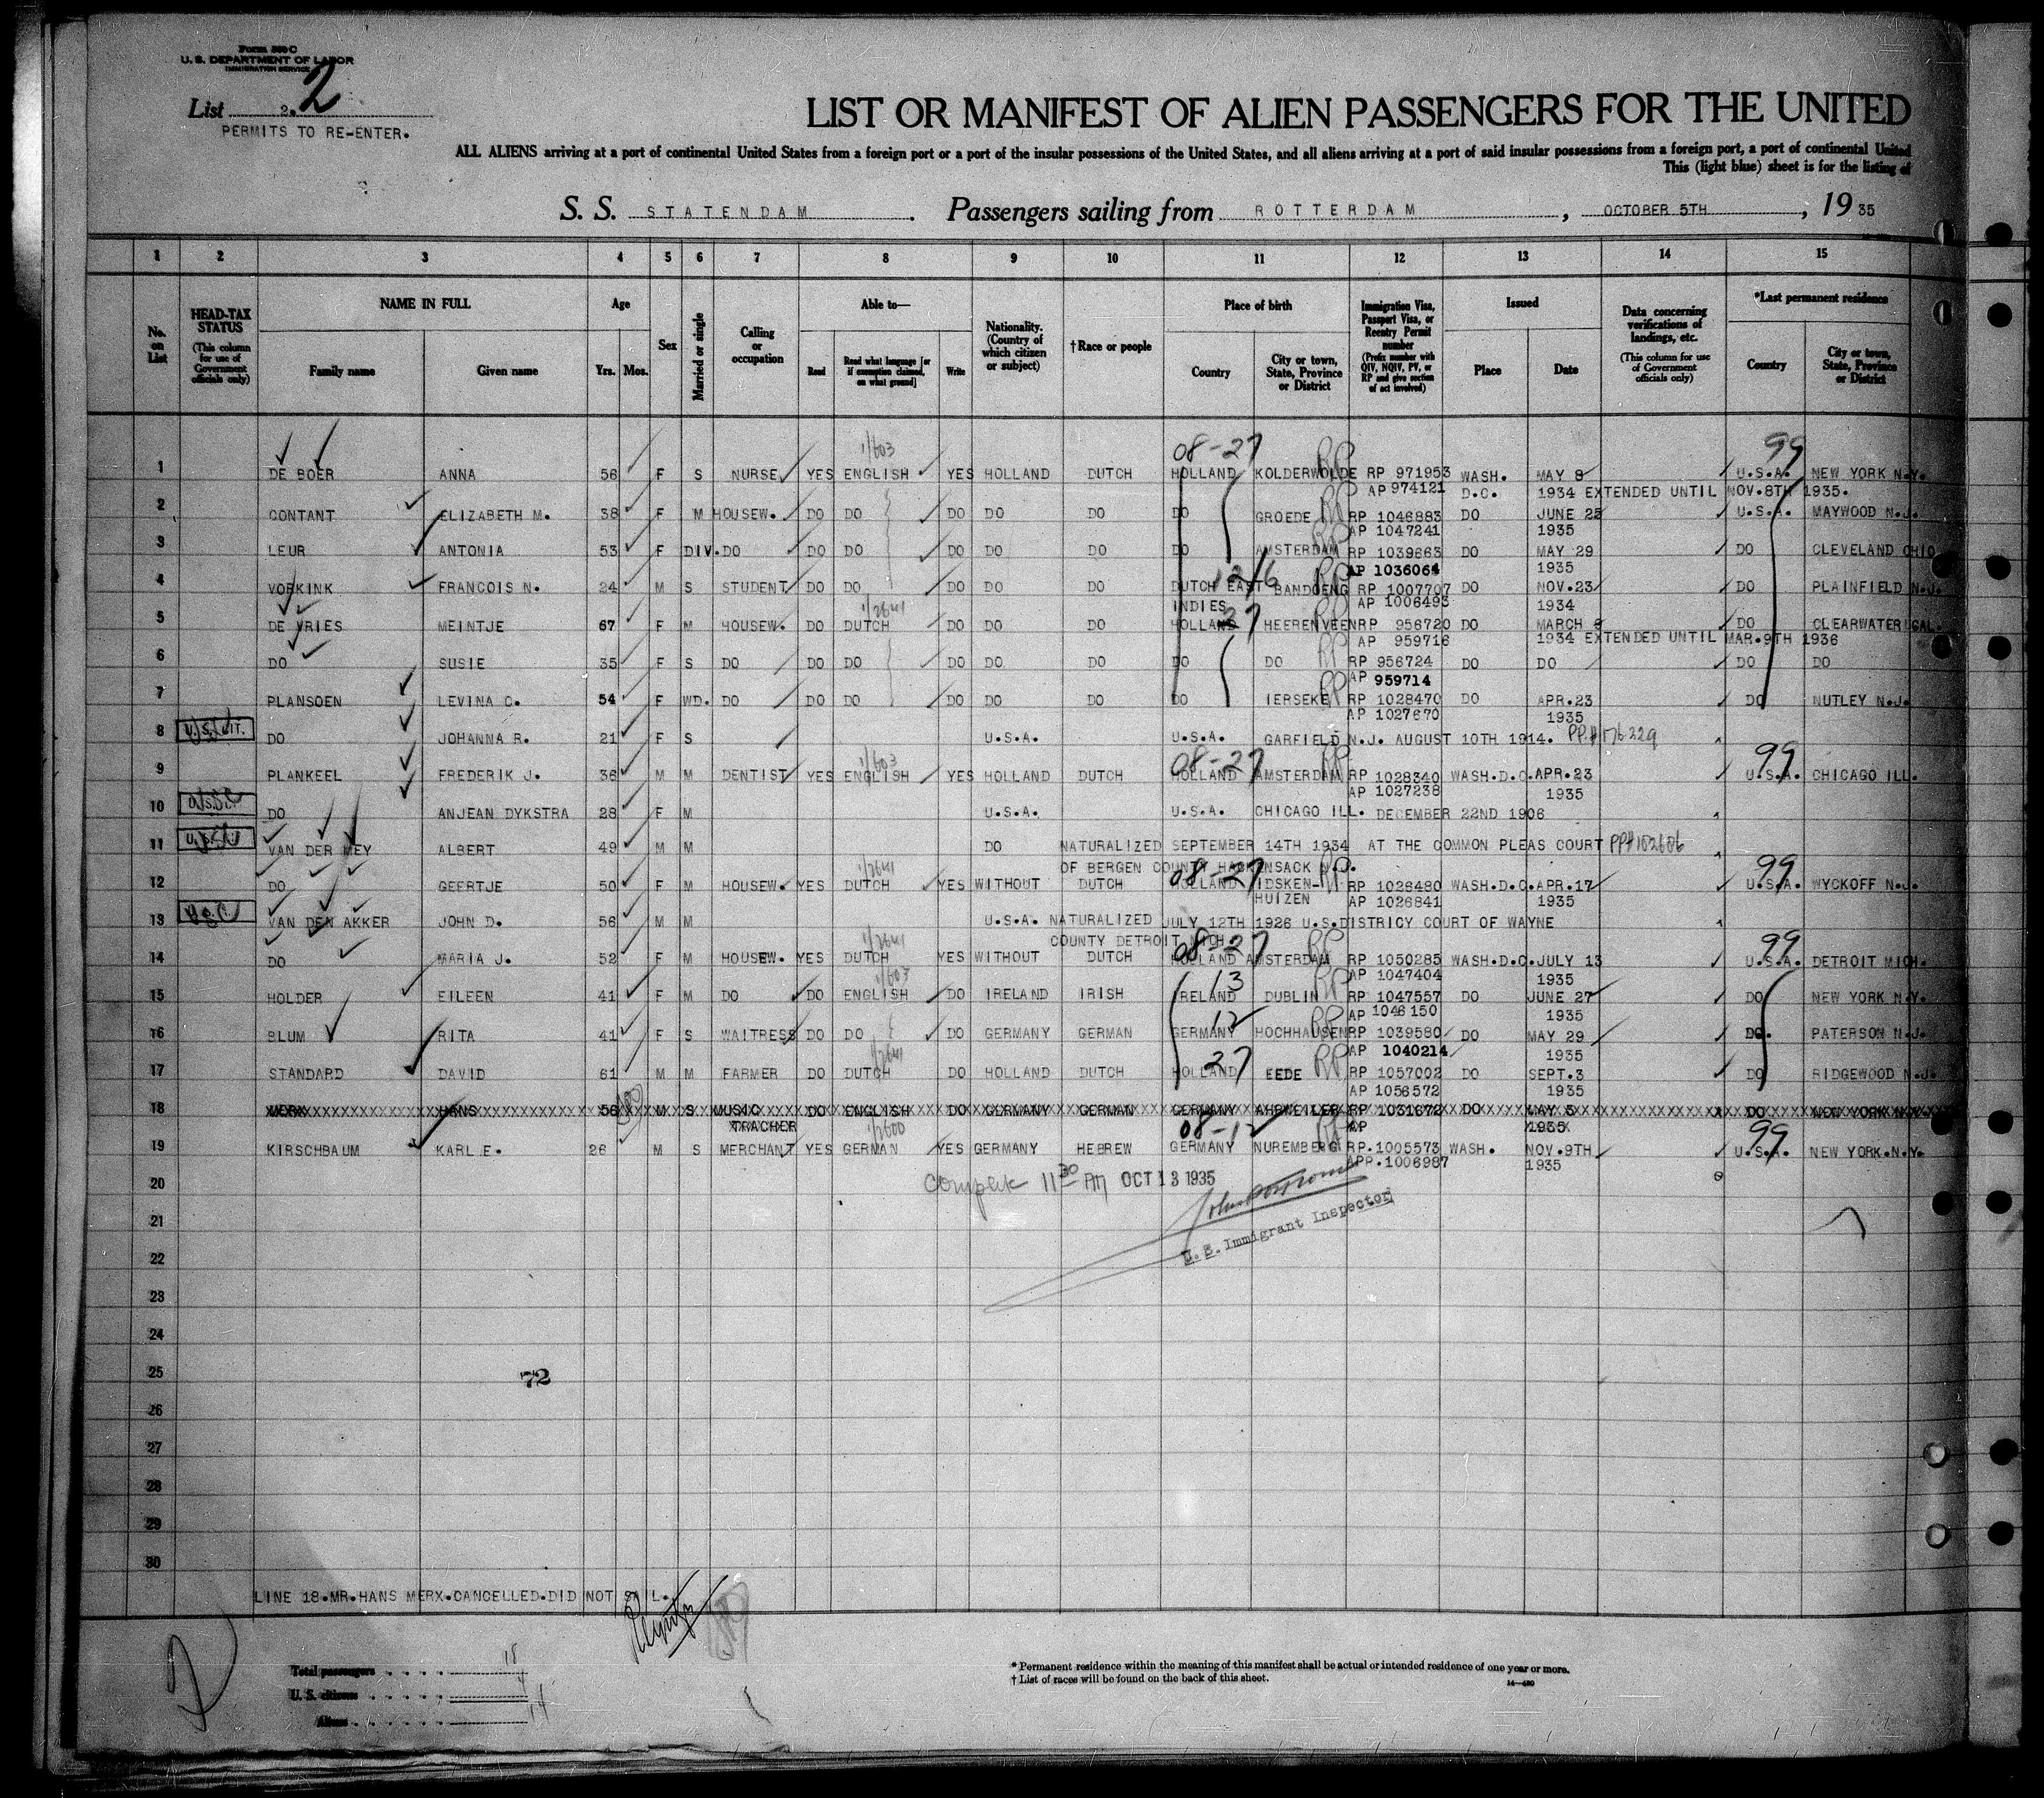 Form 500 C
U. S. DEPARTMENT OF LABOR
IMMIGRATION SERVICE
List 2. 2
PERMITS TO RE-ENTER.
LIST OR MANIFEST OF ALIEN PASSENGERS FOR THE UNITED
ALL ALIENS arriving at a port of continental United States from a foreign port or a port of the insular possessions of the United States, and all aliens arriving at a port of said insular possessions from a foreign port, a port of continental United
This (light blue) sheet is for the listing of
S. S. STATENDAM . Passengers sailing from ROTTERDAM , OCTOBER 5TH , 19 35
1 2 3 4 5 6 7 8 9 10 11 12 13 14 15
No. on List
HEAD-TAX STATUS
(This column for use of Government officials only)
NAME IN FULL
Family name
Given name
Age
Yrs. Mos.
Sex
Married or single
Calling or occupation
Able to—
Read
Read what language [or if exemption claimed, on what ground]
Write
Nationality. (Country of which citizen or subject)
†Race or people
Place of birth
Country
City or town, State, Province or District
Immigration Visa, Passport Visa, or Reentry Permit number
(Prefix number with QIV, NQIV, PV, or RP and give section of act involved)
Issued
Place
Date
Data concerning verifications of landings, etc.
(This column for use of Government officials only)
*Last permanent residence
Country
City or town, State, Province or District
1/603 08-27 RP 99
1 DE BOER ANNA 56 F S NURSE YES ENGLISH YES HOLLAND DUTCH HOLLAND KOLDERWOLDE RP 971953 WASH. MAY 8 U.S.A. NEW YORK N.Y.
AP 974121 D.C. 1934 EXTENDED UNTIL NOV.8TH 1935.
2 CONTANT ELIZABETH M. 38 F M HOUSEW. DO DO DO DO DO DO GROEDE RP 1046883 DO JUNE 25 U.S.A. MAYWOOD N.J.
AP 1047241 1935
3 LEUR ANTONIA 53 F DIV. DO DO DO DO DO DO DO AMSTERDAM RP 1039663 DO MAY 29 DO CLEVELAND OHIO
AP 1036064 1935
4 VORKINK FRANCOIS N. 24 M S STUDENT DO DO DO DO DO DUTCH EAST BANDOENG RP 1007707 DO NOV.23 DO PLAINFIELD N.J.
INDIES AP 1006493 1934
5 DE VRIES MEINTJE 67 F M HOUSEW. DO DUTCH DO DO DO HOLLAND HEERENVEEN RP 956720 DO MARCH 9 DO CLEARWATER CAL.
AP 959716 1934 EXTENDED UNTIL MAR.9TH 1936
6 DO SUSIE 35 F S DO DO DO DO DO DO DO DO RP 956724 DO DO DO DO
AP 959714
7 PLANSOEN LEVINA C. 54 F WD. DO DO DO DO DO DO DO IERSEKE RP 1028470 DO APR.23 DO NUTLEY N.J.
AP 1027670 1935
8 U.S. CIT. DO JOHANNA R. 21 F S U.S.A. U.S.A. GARFIELD N.J. AUGUST 10TH 1914. PP.#176229
1/603 08-27 99
9 PLANKEEL FREDERIK J. 36 M M DENTIST YES ENGLISH YES HOLLAND DUTCH HOLLAND AMSTERDAM RP 1028340 WASH.D.C. APR.23 U.S.A. CHICAGO ILL.
AP 1027238 1935
10 DO ANJEAN DYKSTRA 28 F M U.S.A. U.S.A. CHICAGO ILL. DECEMBER 22ND 1906
11 VAN DER MEY ALBERT 49 M M DO NATURALIZED SEPTEMBER 14TH 1934 AT THE COMMON PLEAS COURT PP#102606
OF BERGEN COUNTY HACKENSACK N.J.
08-27 99
12 DO GEERTJE 50 F M HOUSEW. YES DUTCH YES WITHOUT DUTCH HOLLAND IDSKEN- RP 1026480 WASH.D.C. APR.17 U.S.A. WYCKOFF N.J.
HUIZEN AP 1026841 1935
13 VAN DEN AKKER JOHN D. 56 M M U.S.A. NATURALIZED JULY 12TH 1926 U.S.DISTRICY COURT OF WAYNE
COUNTY DETROIT MICH.
08-27 99
14 DO MARIA J. 52 F M HOUSEW. YES DUTCH YES WITHOUT DUTCH HOLLAND AMSTERDAM RP 1050285 WASH.D.C. JULY 13 U.S.A. DETROIT MICH.
AP 1047404 1935
15 HOLDER EILEEN 41 F M DO DO ENGLISH DO IRELAND IRISH IRELAND DUBLIN RP 1047557 DO JUNE 27 DO NEW YORK N.Y.
AP 1046150 1935
16 BLUM RITA 41 F S WAITRESS DO DO DO GERMANY GERMAN GERMANY HOCHHAUSEN RP 1039580 DO MAY 29 DO. PATERSON N.J.
AP 1040214 1935
17 STANDARD DAVID 61 M M FARMER DO DUTCH DO HOLLAND DUTCH HOLLAND EEDE RP 1057002 DO SEPT.3 DO RIDGEWOOD N.J.
AP 1056572 1935
18 MERX HANS 56 M S MUSIC DO ENGLISH DO GERMANY GERMAN GERMANY AHRWEILER RP 1031672 DO MAY 5 DO NEW YORK N.Y.
TEACHER AP 1935
08-12 99
19 KIRSCHBAUM KARL E. 26 M S MERCHANT YES GERMAN YES GERMANY HEBREW GERMANY NUREMBERG RP.1005573 WASH. NOV.9TH U.S.A. NEW YORK.N.Y.
APP.1006987 1935
20 Complete 11 30 AM OCT 13 1935
21
U. S. Immigrant Inspector
22
23
24
25 72
26
27
28
29
30
LINE 18.MR.HANS MERX.CANCELLED.DID NOT SAIL.
Total passengers 18
U. S. citizens 4
Aliens 14
* Permanent residence within the meaning of this manifest shall be actual or intended residence of one year or more.
† List of races will be found on the back of this sheet.
14—480